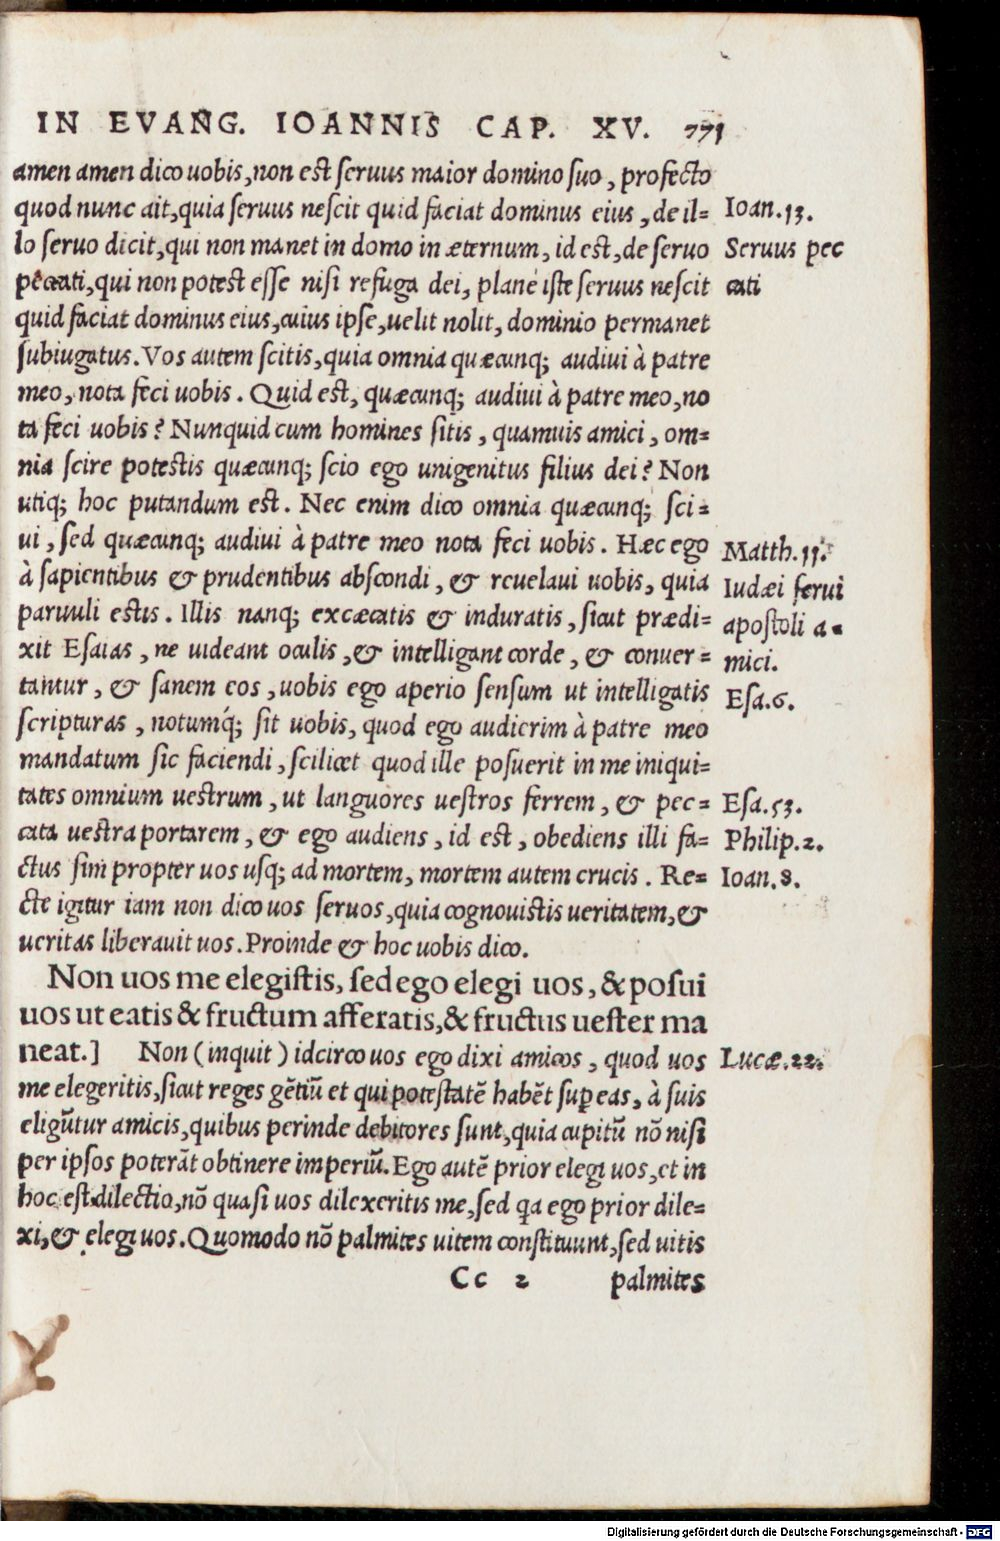 IN EVANG. IOANNIS CAP. XV. 771
amen amen dico uobis, non est seruus maior domino suo, profecto
quod nunc ait, quia seruus nescit quid faciat dominus eius, de il=
Ioan. 13.
lo seruo dicit, qui non manet in domo in æternum, id est, de seruo
Seruus pec
peccati, qui non potest esse nisi refuga dei, planè iste seruus nescit
cati
quid faciat dominus eius, cuius ipse, uelit nolit, dominio permanet
subiugatus. Vos autem scitis, quia omnia quæcunq; audiui à patre
meo, nota feci uobis. Quid est, quæcunq; audiui à patre meo, no
ta feci uobis? Nunquid cum homines sitis, quamuis amici, om=
nia scire potestis quæcunq; scio ego unigenitus filius dei? Non
utiq; hoc putandum est. Nec enim dico omnia quæcunq; sci=
ui, sed quæcunq; audiui à patre meo nota feci uobis. Hæc ego
Matth. 11.
à sapientibus & prudentibus abscondi, & reuelaui uobis, quia
Iudæi serui
paruuli estis. Illis nanq; excæcatis & induratis, sicut prædi=
apostoli a=
xit Esaias, ne uideant oculis, & intelligant corde, & conuer=
mici.
tantur, & sanem eos, uobis ego aperio sensum ut intelligatis
Esa. 6.
scripturas, notumq́; sit uobis, quod ego audierim à patre meo
mandatum sic faciendi, scilicet quod ille posuerit in me iniqui=
tates omnium uestrum, ut languores uestros ferrem, & pec=
Esa. 53.
cata uestra portarem, & ego audiens, id est, obediens illi fa=
Philip. 2.
ctus sim propter uos usq; ad mortem, mortem autem crucis. Re=
Ioan. 8.
cte igitur iam non dico uos seruos, quia cognouistis ueritatem, &
ueritas liberauit uos. Proinde & hoc uobis dico.
Non uos me elegistis, sed ego elegi uos, & posui
uos ut eatis & fructum afferatis, & fructus uester ma
neat.] Non (inquit) idcirco uos ego dixi amicos, quod uos
Lucæ. 22.
me elegeritis, sicut reges gẽtiũ et qui potestatẽ habẽt sup eas, à suis
eligũtur amicis, quibus perinde debitores sunt, quia cupitũ nõ nisi
per ipsos poterãt obtinere imperiũ. Ego autẽ prior elegi uos, et in
hoc est dilectio, nõ quasi uos dilexeritis me, sed qa ego prior dile=
xi, & elegi uos. Quomodo nõ palmites uitem constituunt, sed uitis
Cc 2 palmites
Digitalisierung gefördert durch die Deutsche Forschungsgemeinschaft - DFG